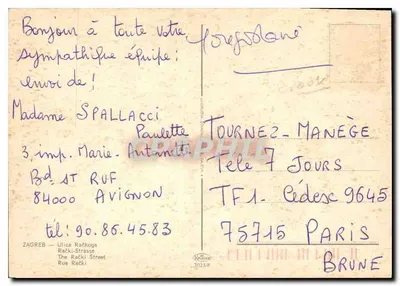 Bonjour à toute votre
sympathique équipe :
envoi de !
Madame SPALLACCI
Paulette
3, imp. Marie-Antoinette
Bd ST RUF
84000 AVIGNON
tél: 90.86.45.83
ZAGREB — Ulica Račkoga
Rački-Strasse
The Rački Street
Rue Rački
TOURNEZ-MANÈGE
Télé 7 JOURS
TF1- Cédex 9645
75715 PARIS
BRUNE